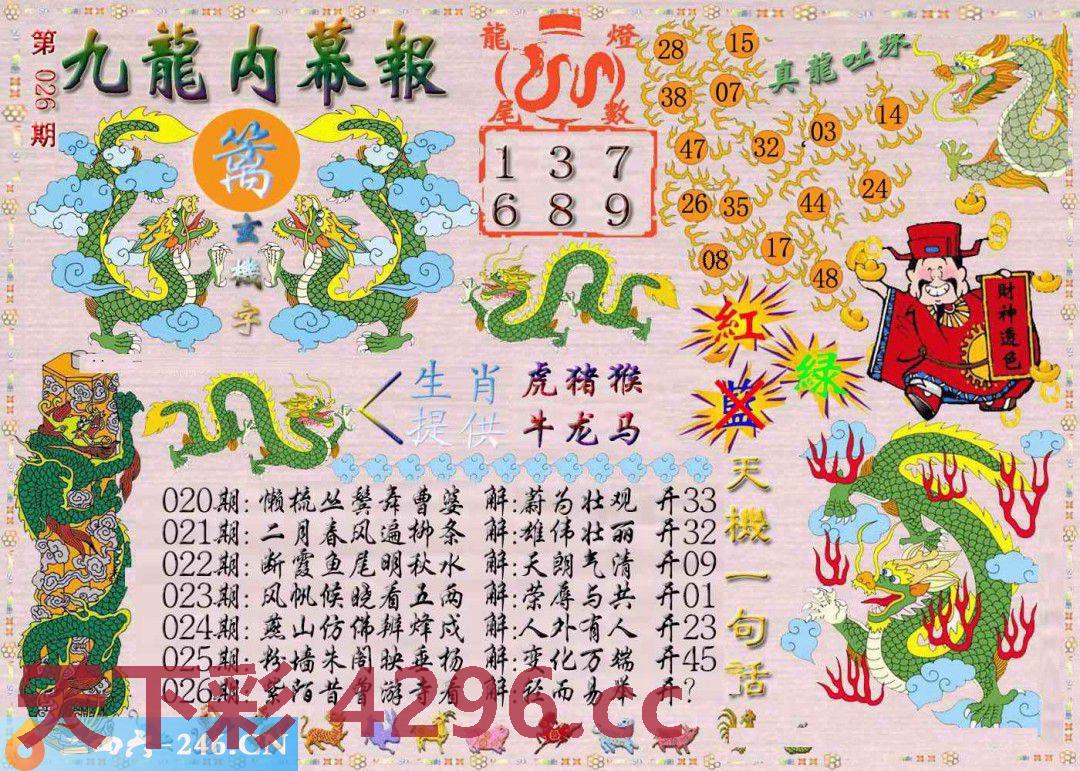 第026期
九龍内幕報
篱
玄機字
龍燈
尾數
1 3 7
6 8 9
28 15
38 07
47 32 03 14
26 35 44 24
08 17 48
真龍吐珠
紅
綠
藍
財神透色
生肖 虎猪猴
提供 牛龙马
020期: 懒梳丛鬓舞曹婆 解:蔚为壮观 开33
021期: 二月春风遍柳条 解:雄伟壮丽 开32
022期: 断霞鱼尾明秋水 解:天朗气清 开09
023期: 风帆候晓看五两 解:荣辱与共 开01
024期: 燕山仿佛辨烽戍 解:人外有人 开23
025期: 粉墙朱阁映垂杨 解:变化万端 开45
026期: 紫陌昔曾游寺看 解:轻而易举 开?
天機一句话
天下彩 4296.cc
246.CN